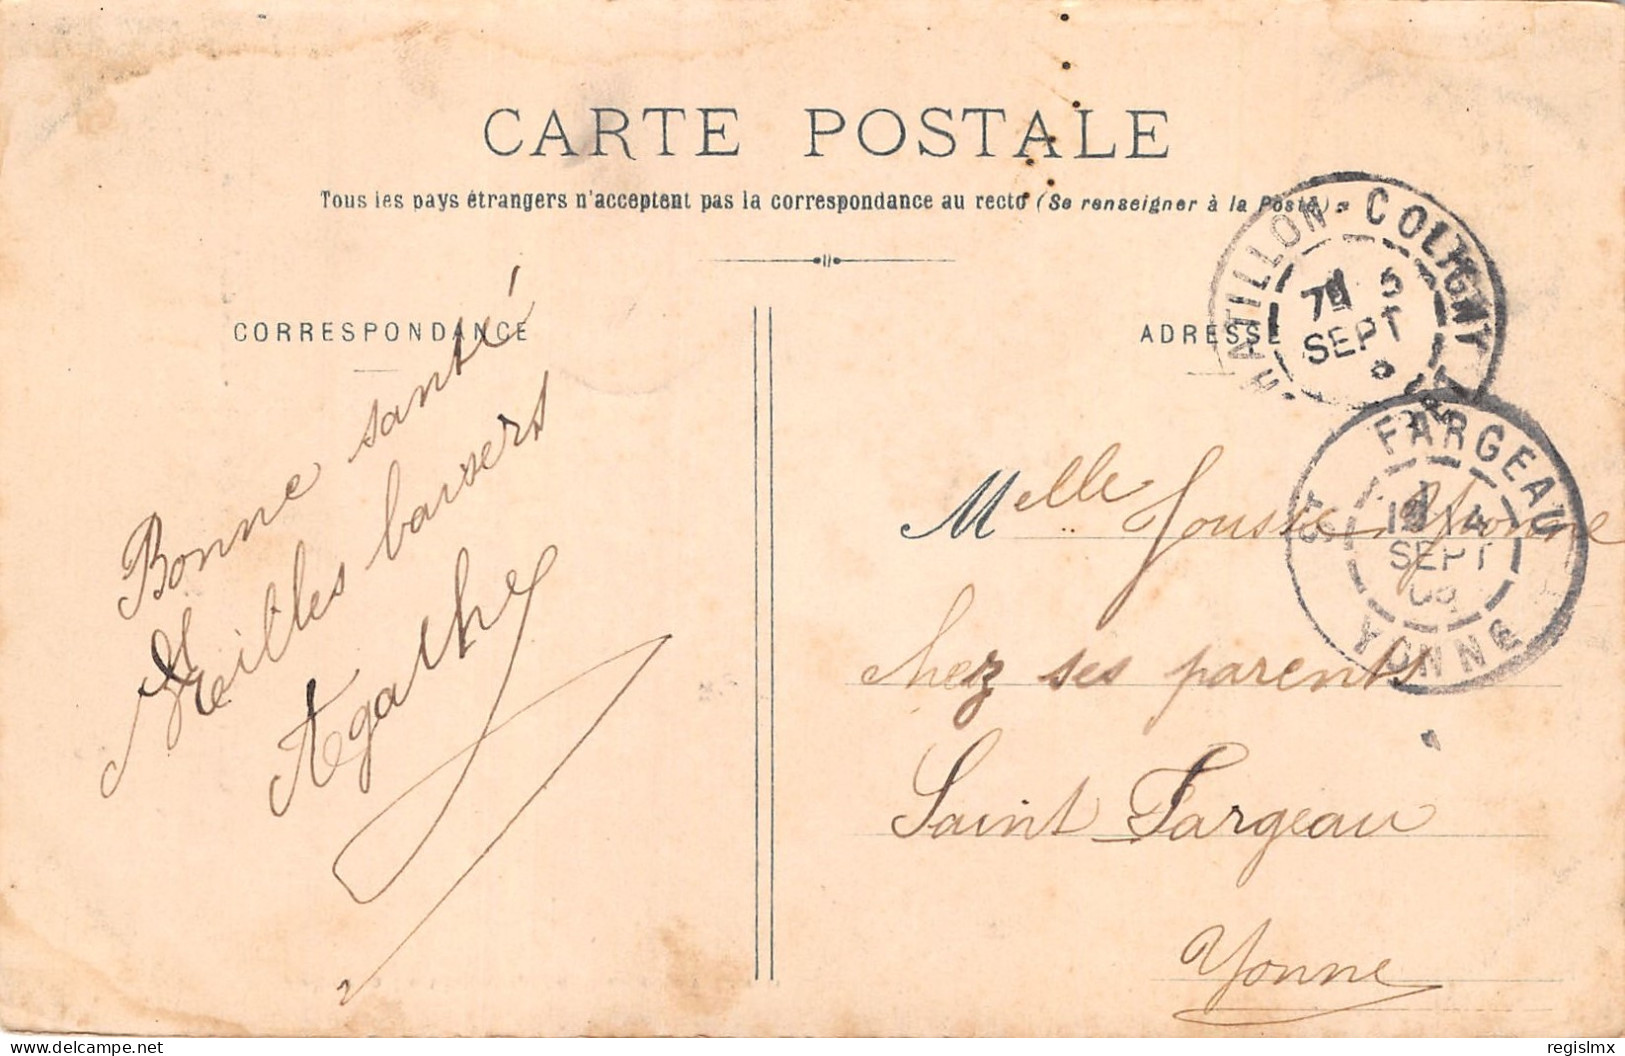 CARTE POSTALE
Tous les pays étrangers n'acceptent pas la correspondance au recto (Se renseigner à la Poste).
CORRESPONDANCE
Bonne santé
Meilles baisers
Agathe
ADRESSE
HATILLON-COLIGNY
5
SEPT
ST FARGEAU
14
SEPT
YONNE
Melle Yvonne
chez ses parents
Saint Fargeau
Yonne
regislmx